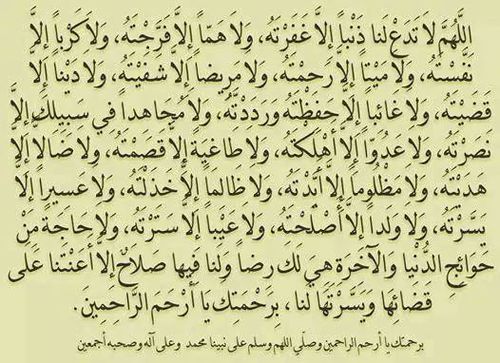 اللَّهُمَّ لاَ تَدَعْ لَنا ذَنْباً إِلاَّ غَفَرْتَهُ، وَلاَ هَمّاً إِلاَّ فَرَّجْتَهُ، وَلاَ كَرْباً إِلاَّ
نَفَّسْتَهُ، وَلا مَيِّتاً إِلاَّ رَحِمْتَهُ، وَلا مَرِيضاً إِلاَّ شَفَيْتَهُ، وَلا دَيْناً إِلاَّ
قَضَيْتَهُ، وَلا غائباً إِلاَّ حَفِظْتَهُ وَرَدِدْتَهُ، وَلا مُجاهداً في سَبِيلِكَ إِلاَّ
نَصَرْتَهُ، وَلا عَدُوّاً إِلاَّ أَهْلِكْتَهُ، وَلا طاغيةً إِلاَّ قَصَمْتَهُ، وَلا ضَالاًّ إِلاَّ
هَدَيْتَهُ، وَلا مَظْلُوماً إِلاَّ أَيَّدْتَهُ، وَلا ظالماً إِلاَّ خَذَلْتَهُ، وَلا عَسِيراً إِلاَّ
يَسَّرْتَهُ، وَلا ولداً إِلاَّ أَصْلَحْتَهُ، وَلا عَيْباً إِلاَّ سَتَرْتَهُ، وَلا حَاجَةً مِنْ
حَوائِجِ الدُّنْيا وَالآخِرَةِ هِيَ لَكَ رِضاً وَلَنا فِيها صَلاحٌ إِلاَّ أَعَنْتَنا عَلَى
قَضائِها وَيَسَّرْتَهَا لَنا، بِرَحْمَتِكَ يا أَرْحَمَ الرَّاحِمِينَ.
برحمتك يا أرحم الراحمين وصلّي اللهم وسلم على نبينا محمد وعلى آله وصحبه أجمعين